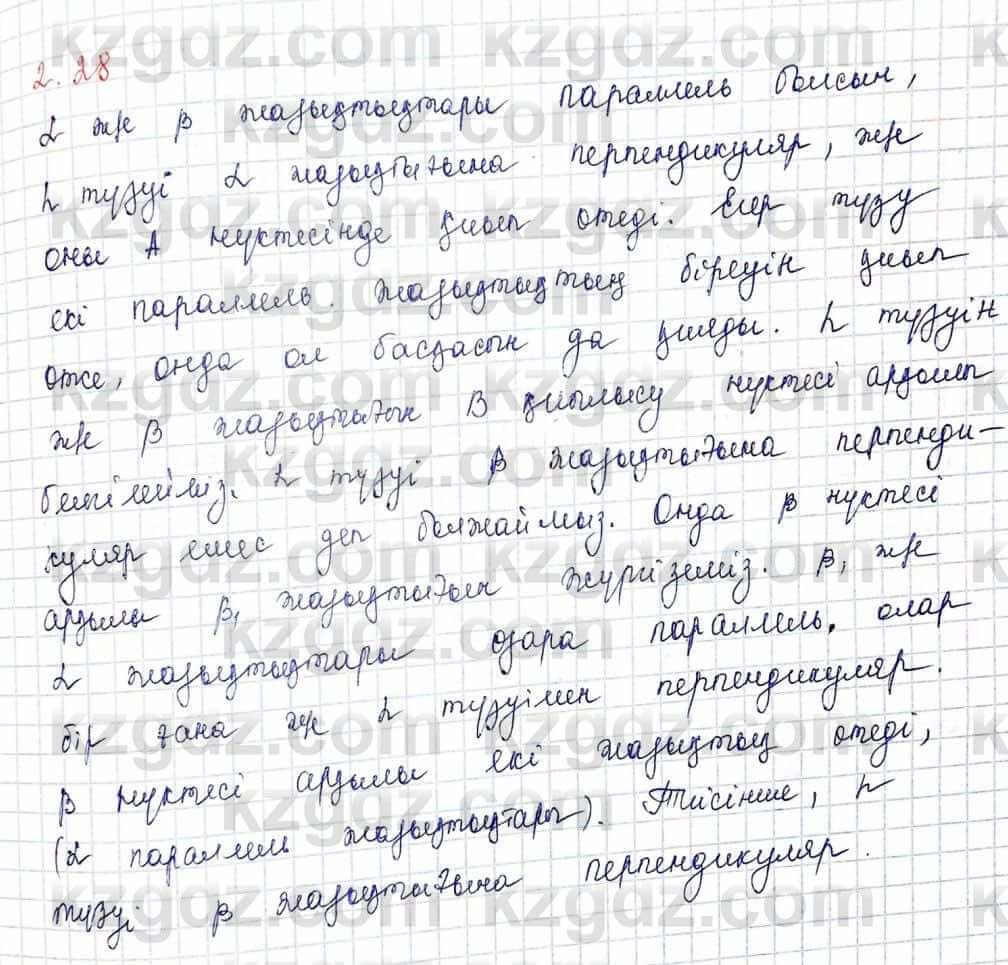 2.28
α және β жазықтықтары параллель болсын,
h түзуі α жазықтығына перпендикуляр, және
оны A нүктесінде қиып өтеді. Егер түзу
екі параллель жазықтықтың біреуін қиып
өтсе, онда ол басқасын да қияды. h түзуін
және β жазықтығын B қиылысу нүктесі арқылы
белгілейміз. h түзуі β жазықтығына перпенди-
куляр емес деп болжаймыз. Онда β нүктесі
арқылы β₁ жазықтығын жүргіземіз. β₁ және
α жазықтықтары өзара параллель, олар
бір ғана және h түзуімен перпендикуляр.
β нүктесі арқылы екі жазықтық өтеді,
(α параллель жазықтықтары). Тиісінше, h
түзуі β жазықтығына перпендикуляр.
kzgdz.com